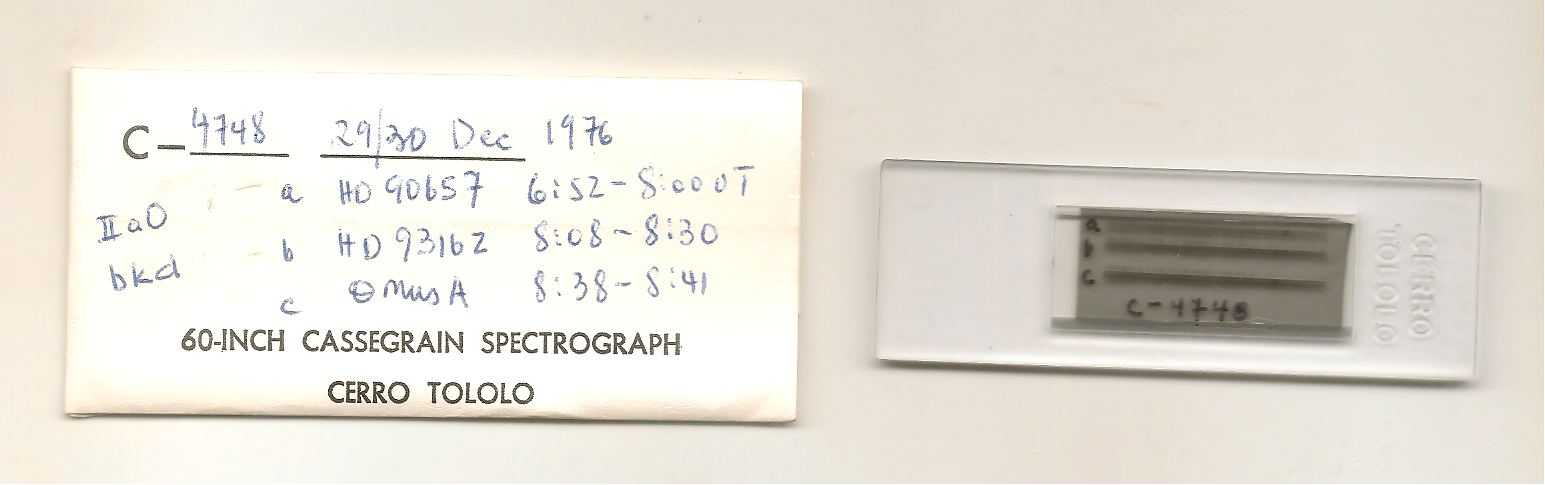 C-4748 29/30 Dec 1976
a HD 90657 6:52-8:00 UT
IIaO
b HD 93162 8:08-8:30
bkd
c θ Mus A 8:38-8:41
60-INCH CASSEGRAIN SPECTROGRAPH
CERRO TOLOLO
a
b
c
C-4748
CERRO
TOLOLO